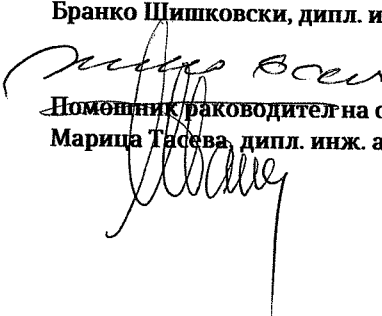 Бранко Шишковски, дипл. и
Помошник раководител на с
Марица Тасева, дипл. инж. а